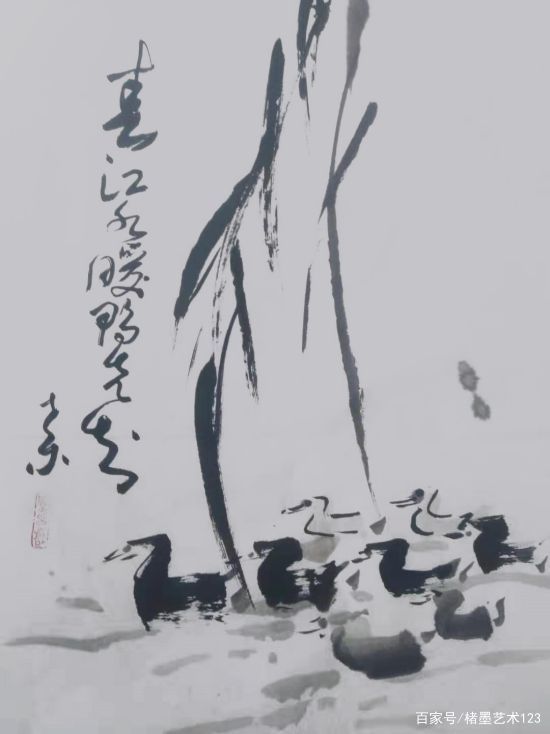 春江水暖鸭先知
素
百家号/楮墨艺术123